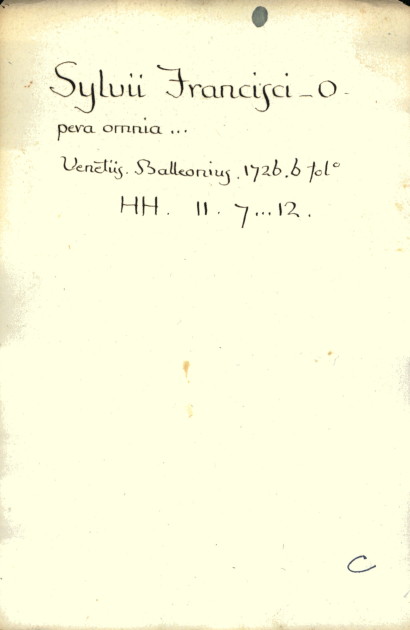 Sylvii Francisci _ O
pera omnia ...
Venētiis. Balleonius. 1726. 6 folº
HH. 11. 7...12.
C